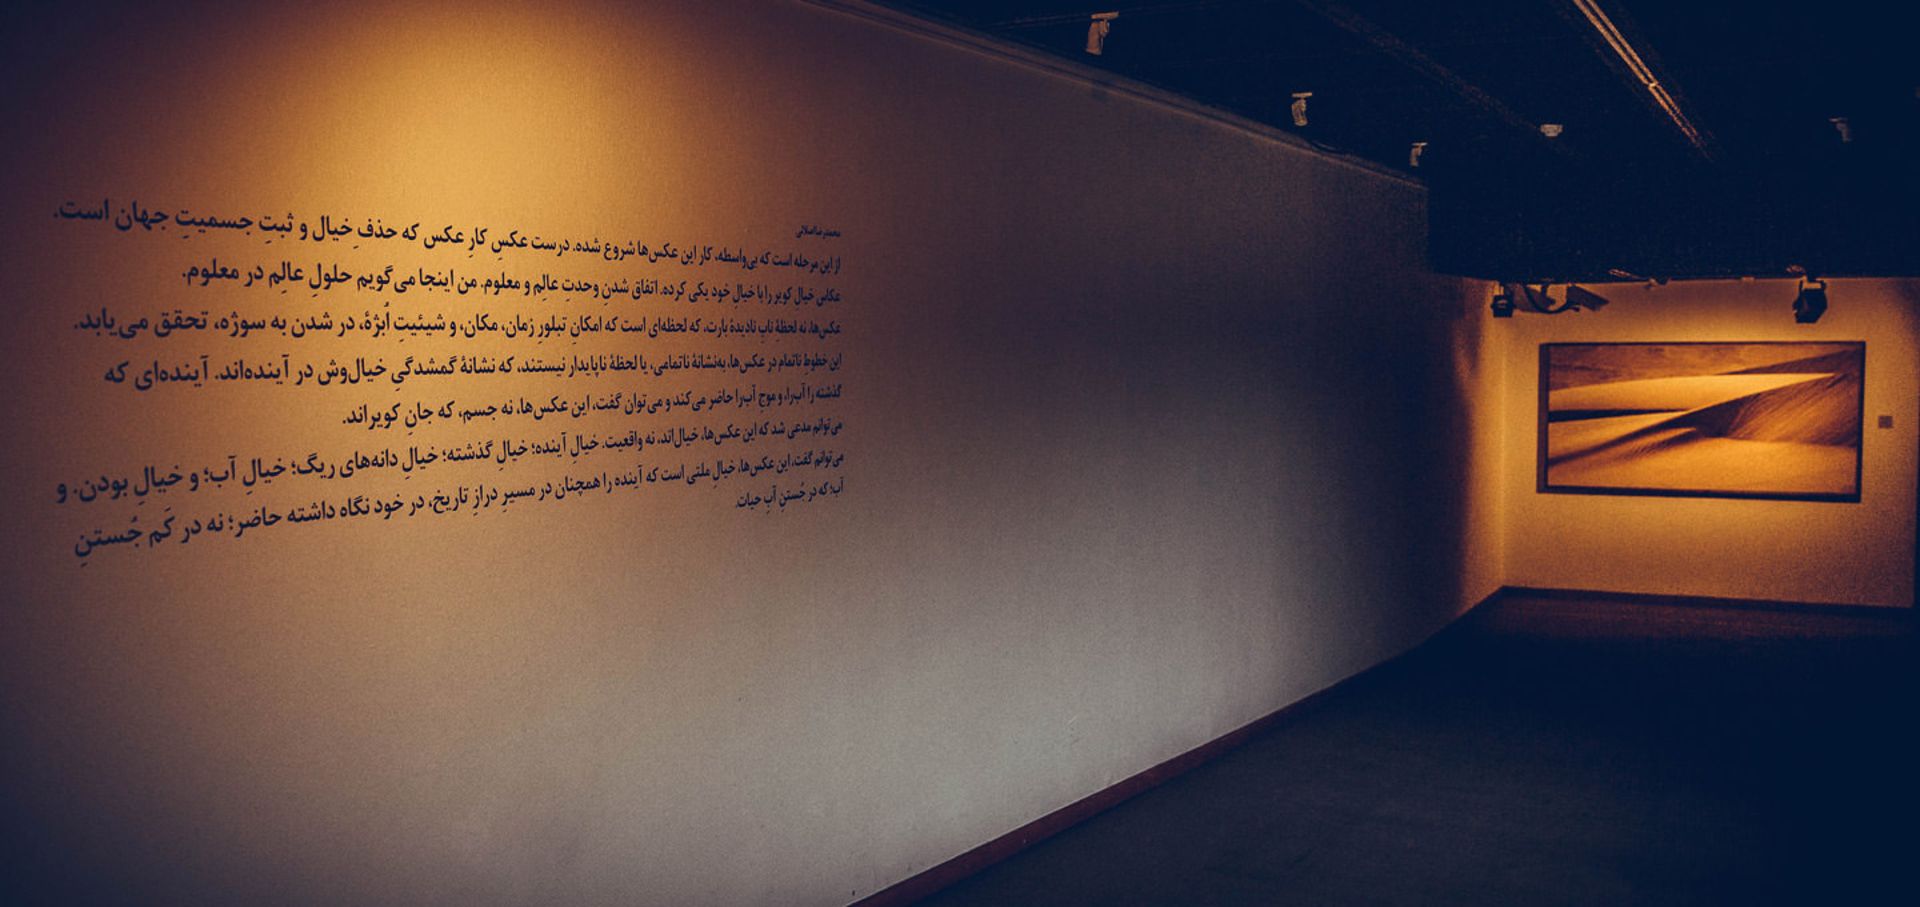 محمدرضا اصلانی
از این مرحله است که بی‌واسطه، کار این عکس‌ها شروع شده. درست عکسِ کارِ عکس که حذفِ خیال و ثبتِ جسمیتِ جهان است.
عکاس خیال کویر را با خیالِ خود یکی کرده. اتفاق شدنِ وحدتِ عالِم و معلوم. من اینجا می‌گویم حلولِ عالِم در معلوم.
عکس‌ها، نه لحظهٔ نابِ نادیدهٔ بارت، که لحظه‌ای است که امکانِ تبلورِ زمان، مکان، و شیئیتِ اُبژه، در شدن به سوژه، تحقق می‌یابد.
این خطوطِ ناتمام در عکس‌ها، به‌نشانهٔ ناتمامی، یا لحظهٔ ناپایدار نیستند، که نشانهٔ گمشدگیِ خیال‌وش در آینده‌اند. آینده‌ای که
گذشته را آب‌را، و موجِ آب‌را حاضر می‌کند و می‌توان گفت، این عکس‌ها، نه جسم، که جانِ کویراند.
می‌توانم مدعی شد که این عکس‌ها، خیال‌اند، نه واقعیت. خیالِ آینده؛ خیالِ گذشته؛ خیالِ دانه‌های ریگ؛ خیالِ آب؛ و خیالِ بودن. و
می‌توانم گفت، این عکس‌ها، خیالِ ملتی است که آینده را همچنان در مسیرِ درازِ تاریخ، در خود نگاه داشته حاضر؛ نه در کَم جُستنِ
آب؛ که در جُستنِ آبِ حیات.